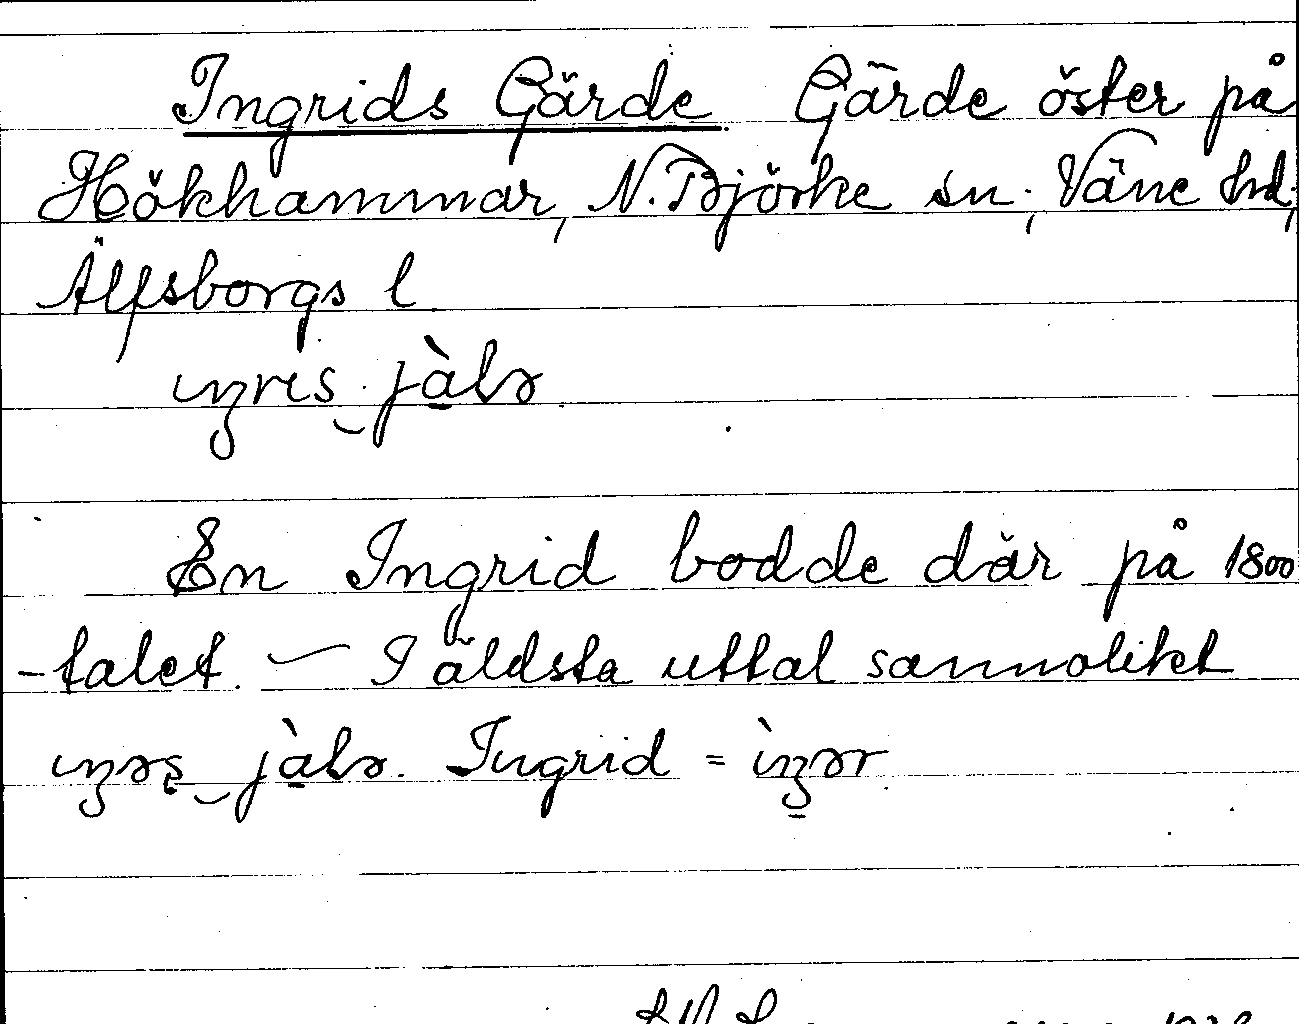 Ingrids Gärde Gärde öster på
Hökhammar, N. Björke sn; Väne hd;
Älfsborgs l
En Ingrid bodde där på 1800
-talet. — I äldsta uttal sannolikt
Ingrid =